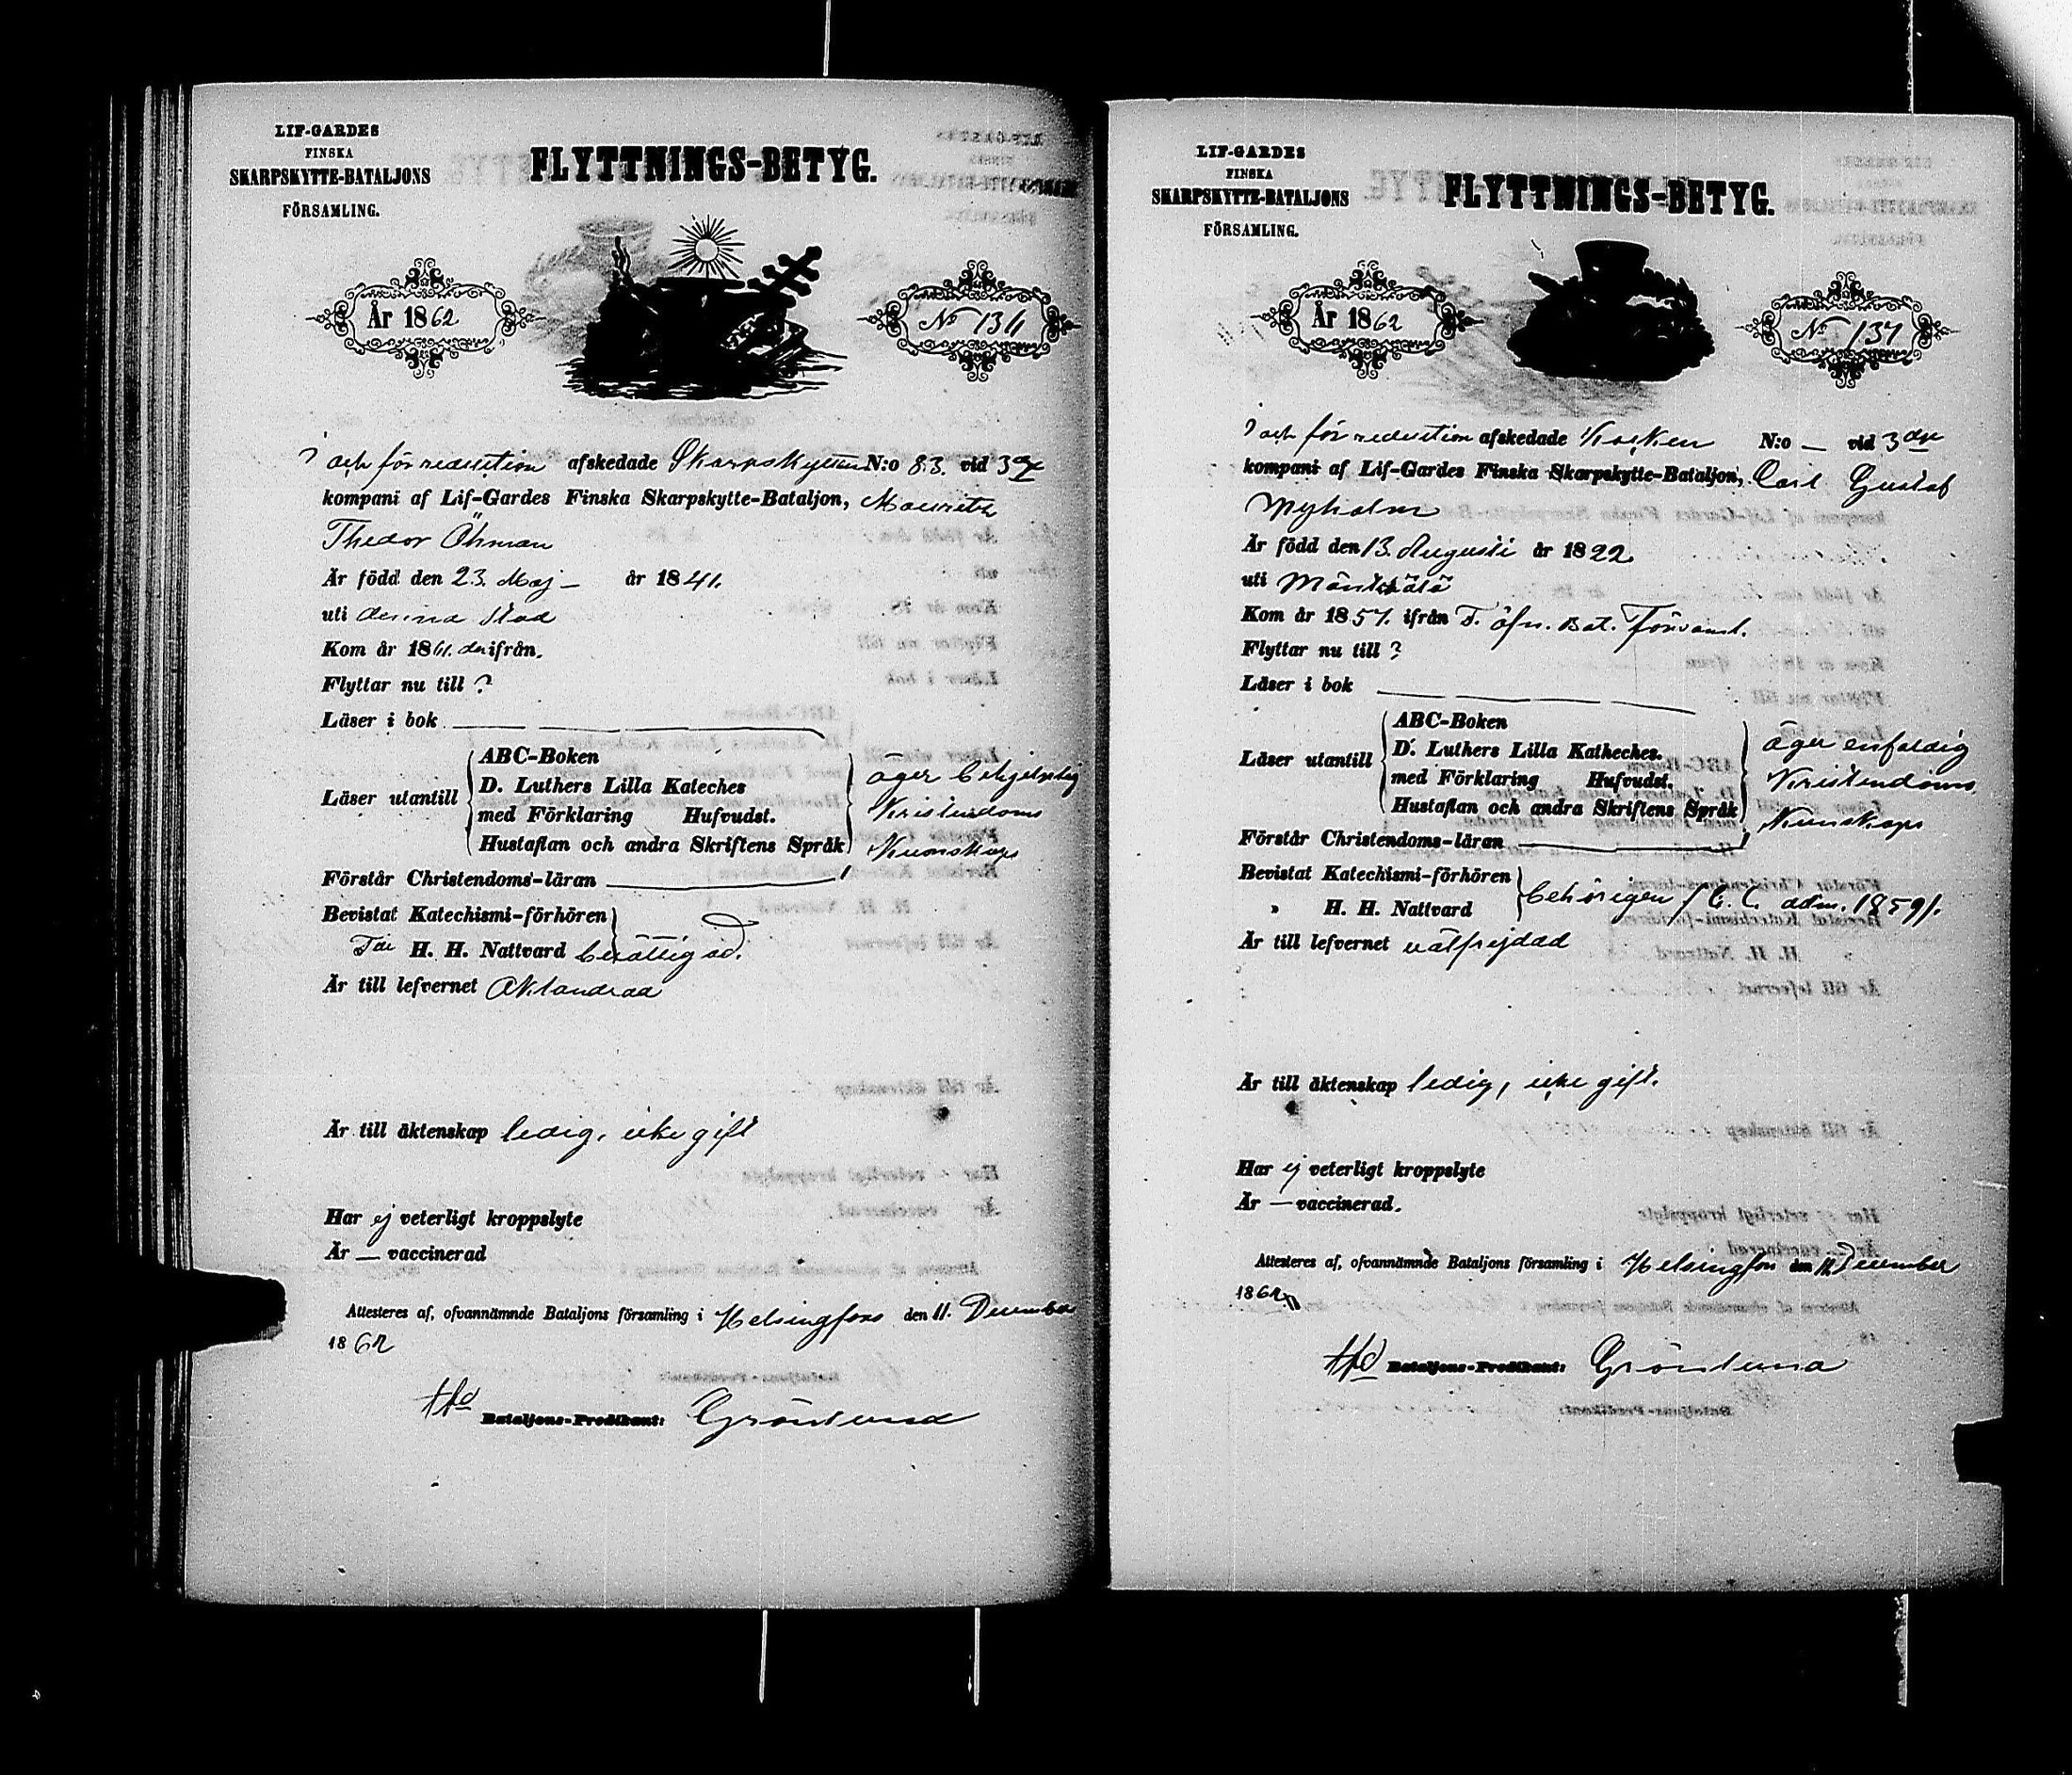 LIF-GARDES
FINSKA
SKARPSKYTTE-BATALJONS
FÖRSAMLING.
FLYTTNINGS-BETYG.
År 1862
No 136
I och för reduction afskedade Skarpskytten N:o 83. vid 3dje
kompani af Lif-Gardes Finska Skarpskytte-Bataljon, Mauritz
Thedor Öhman
Är född den 23. Maj – år 1841.
uti denna Stad
Kom år 1861. derifrån.
Flyttar nu till ?
Läser i bok
Läser utantill
ABC-Boken
D. Luthers Lilla Kateches
med Förklaring Hufvudst.
Hustaflan och andra Skriftens Språk
äger behjelplig
Kristendoms
Kunskap
Förstår Christendoms-läran
Bevistat Katechismi-förhören
Till H. H. Nattvard berättigad.
Är till lefvernet oklandrad
Är till äktenskap ledig, icke gift
Har ej veterligt kroppslyte
Är — vaccinerad
Attesteres af, ofvannämnde Bataljons församling i Helsingfors den 11. December
1862
Bataljons-Predikant: Grönlund
LIF-GARDES
FINSKA
SKARPSKYTTE-BATALJONS
FÖRSAMLING.
FLYTTNINGS-BETYG.
År 1862
No 137
I och för reduction afskedade Kocken N:o — vid 3dje
kompani af Lif-Gardes Finska Skarpskytte-Bataljon, Carl Gustaf
Nyholm
Är född den 13. Augusti år 1822
uti Mäntsälä
Kom år 1857. ifrån F. öfn. Bat. Församl.
Flyttar nu till ?
Läser i bok
Läser utantill
ABC-Boken
D. Luthers Lilla Katheches.
med Förklaring Hufvudst.
Hustaflan och andra Skriftens Språk
äger enfaldig
Kristendoms
Kunskap
Förstår Christendoms-läran
Bevistat Katechismi-förhören
" H. H. Nattvard
behörigen / C. C. adm. 1859/.
Är till lefvernet välfrejdad
Är till äktenskap ledig, icke gift.
Har ej veterligt kroppslyte
Är — vaccinerad.
Attesteres af, ofvannämnde Bataljons församling i Helsingfors den 11. December
1862
Bataljons-Predikant: Grönlund